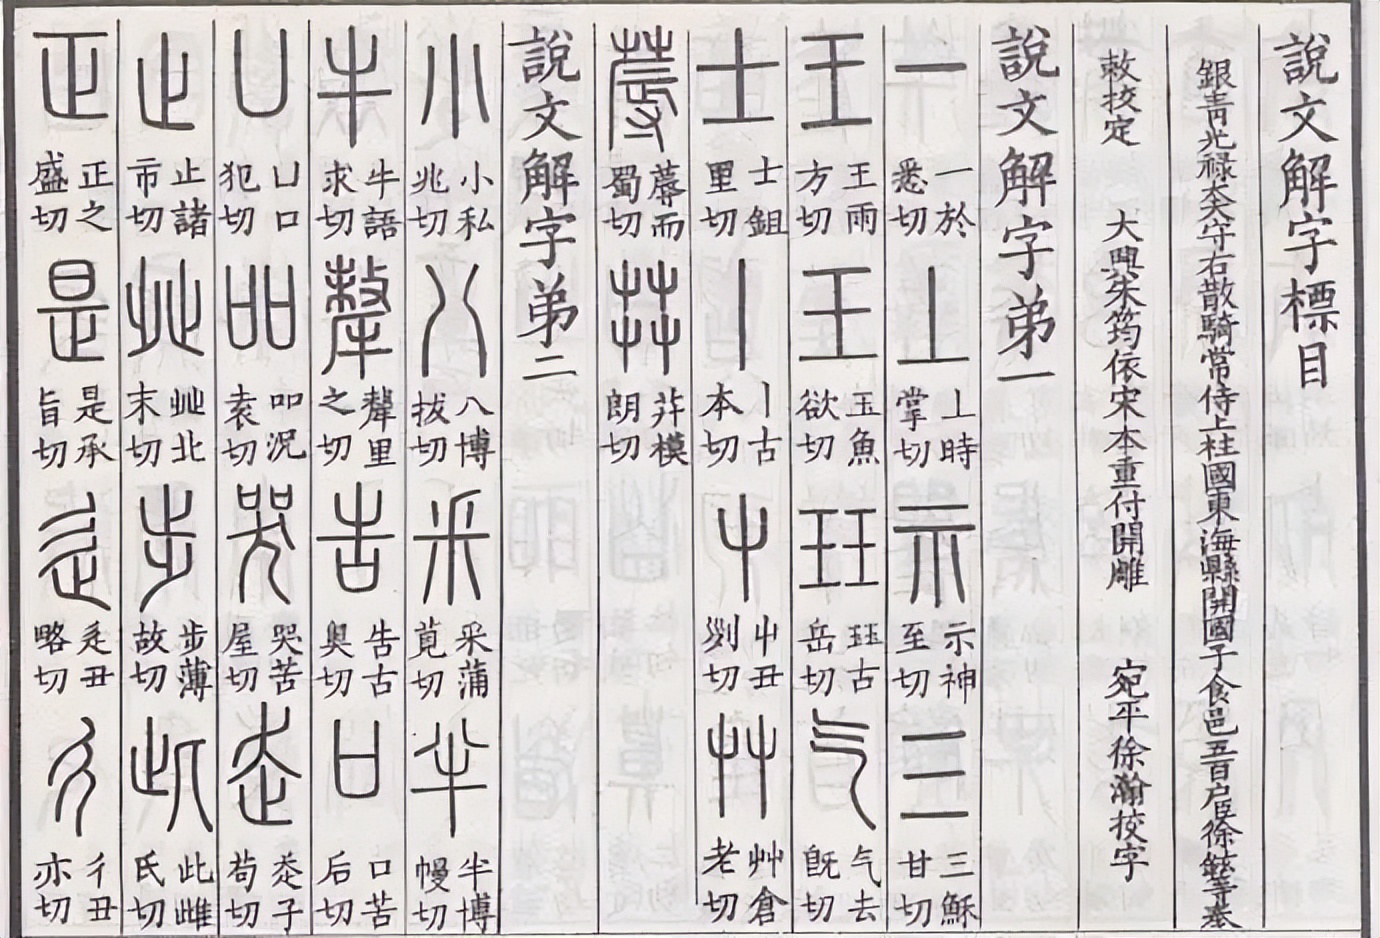 說文解字標目
銀青光禄大夫守右散騎常侍上柱國東海縣開國子食邑五百户臣徐鉉等奉
敕挍定　大興朱筠依宋本重付開雕　宛平徐瀚挍字
說文解字弟一
一 一於悉切 丄 丄時掌切 示 示神至切 三 三穌甘切
王 王雨方切 玉 玉魚欲切 珏 珏古岳切 气 气去旣切
士 士鉏里切 丨 丨古本切 屮 屮丑𠛱切 艸 艸倉老切
蓐 蓐而蜀切 茻 茻模朗切
說文解字弟二
小 小私兆切 八 八博拔切 釆 釆蒲莧切 半 半博幔切
牛 牛語求切 犛 犛里之切 告 告古奥切 口 口苦后切
凵 凵口犯切 吅 吅況袁切 哭 哭苦屋切 走 走子苟切
止 止諸市切 癶 癶北末切 步 步薄故切 此 此雌氏切
正 正之盛切 是 是承旨切 辵 辵丑略切 彳 彳丑亦切